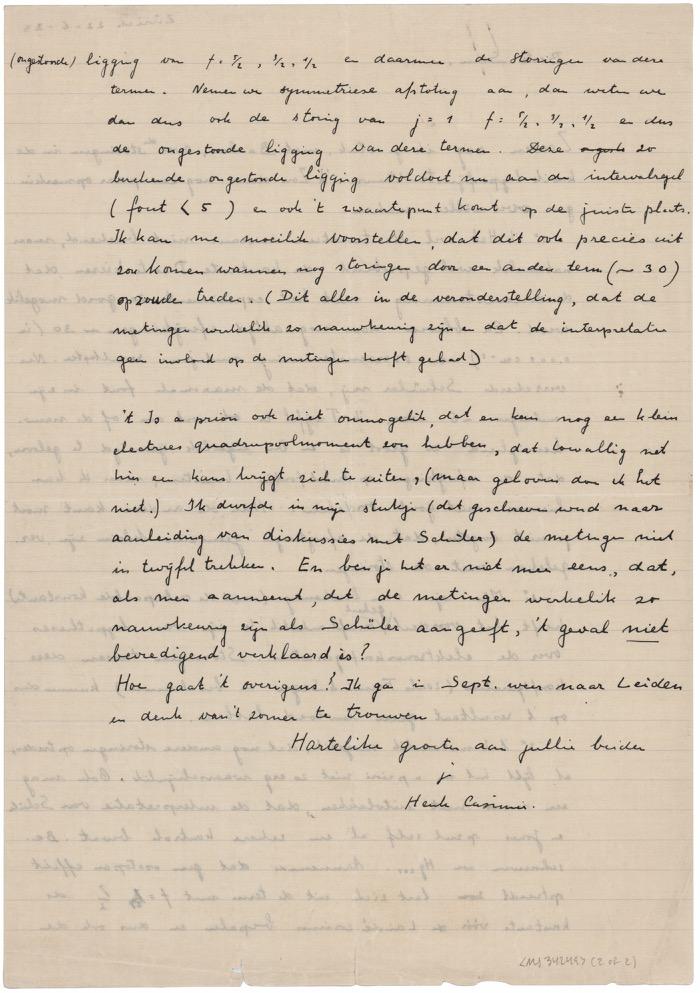 (ongestoorde) ligging van f = 5/2, 3/2, 1/2 en daarmee de storingen van deze
termen. Nemen we symmetriese afstoting aan, dan weten we
dan dus ook de storing van j = 1 f = 5/2, 3/2, 1/2 en dus
de ongestoorde ligging van deze termen. Deze zo
berekende ongestoorde ligging voldoet nu aan de intervalregel
(fout < 5) en ook 't zwaartepunt komt op de juiste plaats.
Ik kan me moeilik voorstellen, dat dit ook precies uit
zou komen wanneer nog storingen door een andere term (~ 30)
op zouden treden. (Dit alles in de veronderstelling, dat de
metingen werkelik zo nauwkeurig zijn en dat de interpretatie
geen invloed op de metingen heeft gehad)
't Is a priori ook niet onmogelik, dat er een nog een klein
electries quadrupoolmoment zou hebben, dat toevallig net
hier een kans krijgt zich te uiten, (maar geloven doe ik het
niet.) Ik durfde in mijn stukje (dat geschreven werd naar
aanleiding van diskussies met Schüler) de metingen niet
in twijfel trekken. En ben je het er niet mee eens, dat,
als men aanneemt, dat de metingen werkelik zo
nauwkeurig zijn als Schüler aangeeft, 't geval niet
bevredigend verklaard is?
Hoe gaat 't overigens? Ik ga in Sept. weer naar Leiden
en denk van 't zomer te trouwen
Hartelike groeten aan jullie beiden
je
Henk Casimir.
LMS 342497 (2 of 2)